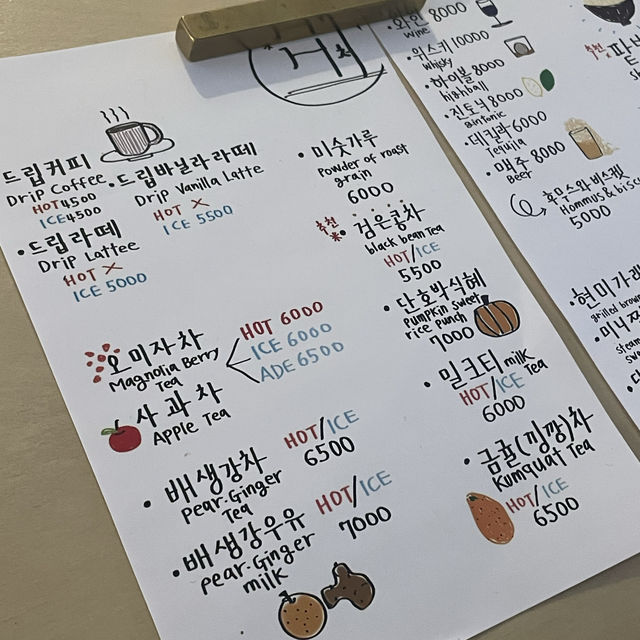 드립커피
Drip Coffee
HOT 4500
ICE 4500
• 드립바닐라라떼
Drip Vanilla Latte
HOT X
ICE 5500
• 드립라떼
Drip Lattee
HOT X
ICE 5000
오미자차
Magnolia Berry
Tea
HOT 6000
ICE 6000
ADE 6500
사과차
Apple Tea
• 배생강차
pear-Ginger
Tea
HOT/ICE
6500
• 배생강우유
pear-Ginger
milk
HOT/ICE
7000
• 미숫가루
Powder of roast
grain
6000
추천
• 검은콩차
black bean Tea
HOT/ICE
5500
• 단호박식혜
Pumpkin Sweet
rice punch
7000
• 밀크티 milk
Tea
HOT/ICE
6000
• 금귤(낑깡)차
Kumquat Tea
HOT/ICE
6500
• 와인 8000
Wine
• 위스키 10000
Whisky
• 하이볼 8000
highball
• 진토닉 8000
Gintonic
• 데킬라 6000
Tequila
• 맥주 8000
Beer
후무스와 비스켓
Hommus & biscu
5000
추천
• 현미가래
grilled brow
• 미니
steam